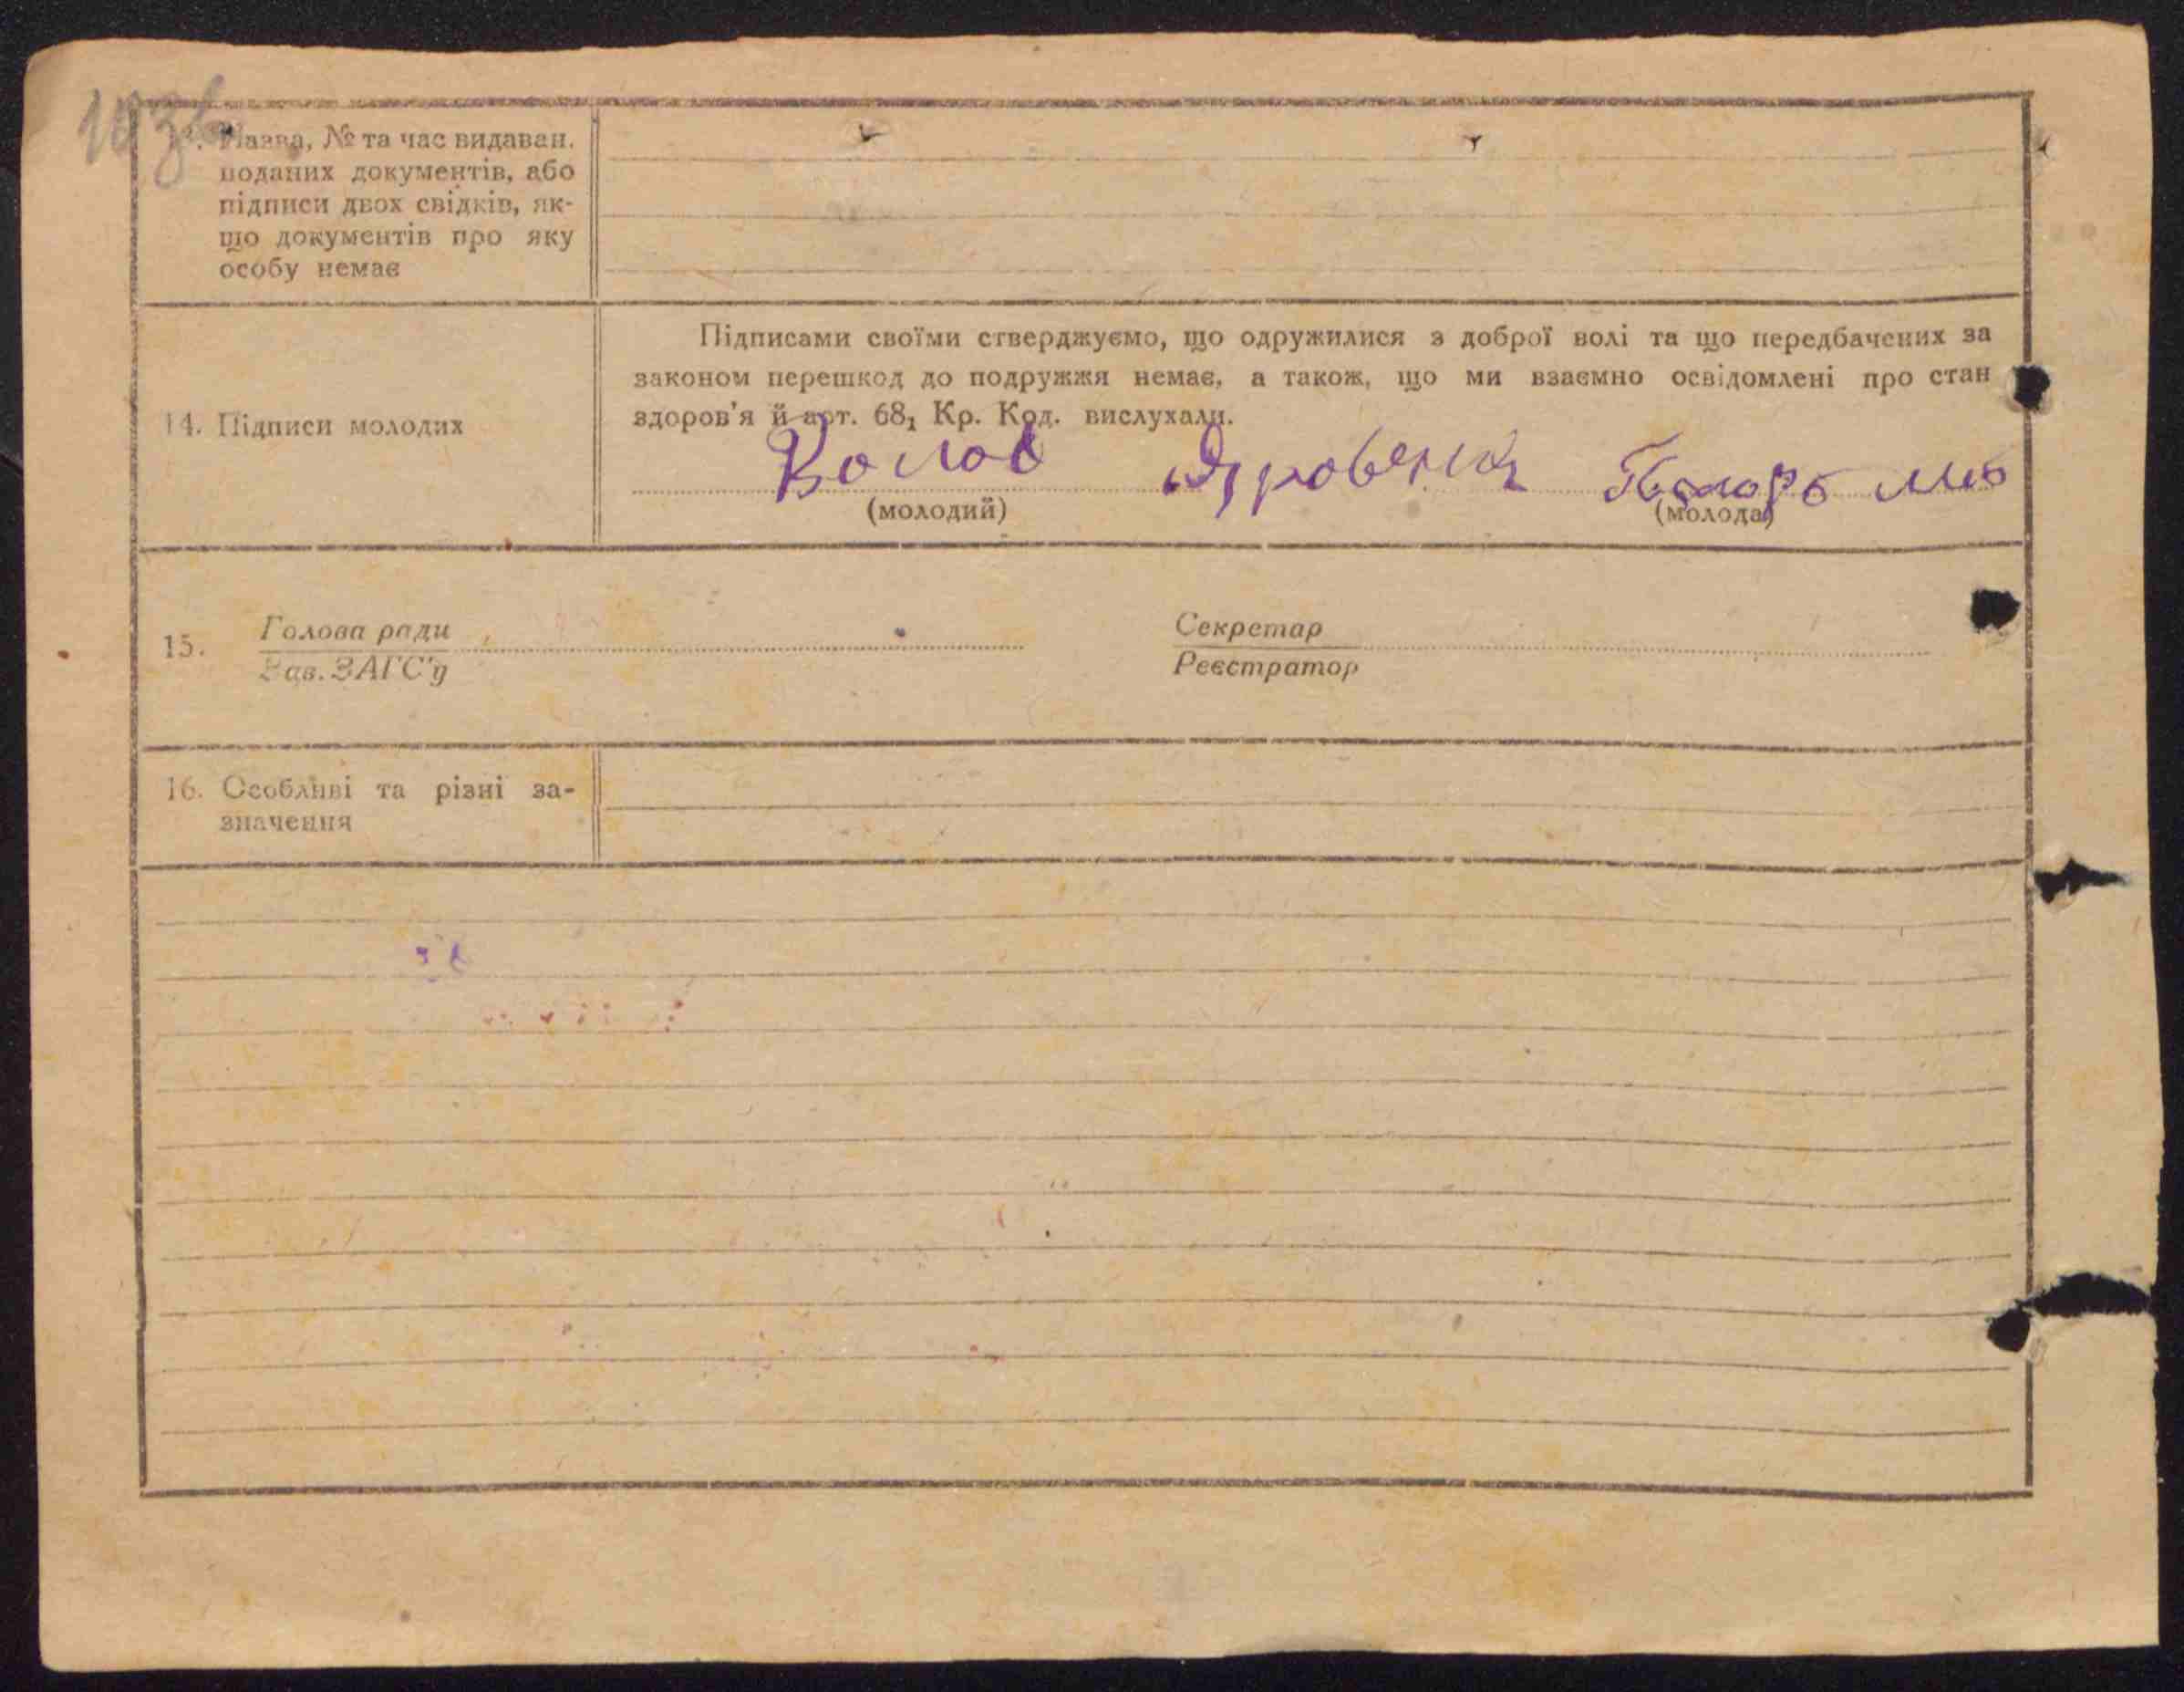 Назва, № та час видаван.
поданих документів, або
підписи двох свідків, як-
що документів про яку
особу немає
14. Підписи молодих
Підписами своїми стверджуємо, що одружилися з доброї волі та що передбачених за
законом перешкод до подружжя немає, а також, що ми взаємно освідомлені про стан
здоров'я й арт. 68₁ Кр. Код. вислухали.
(молодий)
(молода)
15. Голова ради
Зав. ЗАГС'у
Секретар
Реєстратор
16. Особливі та різні за-
значення